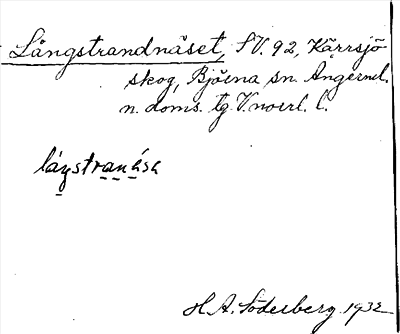 Långstrandnäset, SV. 92, Kärrsjö
skog, Bjurna sn. Ångermel.
n. doms. tg. Vnorrl. l.
låŋstranäsa
H. A. Söderberg 1932